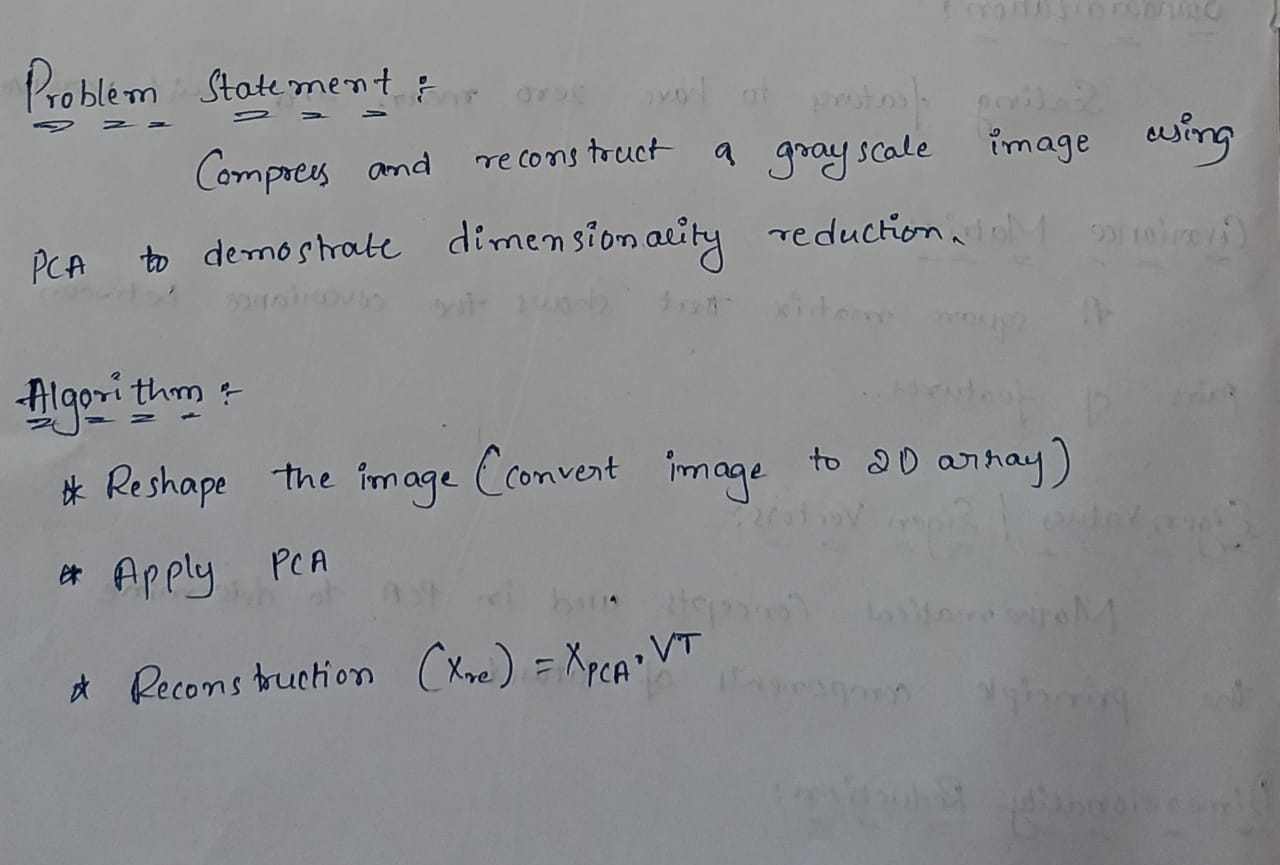 Problem Statement :
Compress and reconstruct a gray scale image using
PCA to demostrate dimensionality reduction.
Algorithm :
* Reshape the image (convert image to 2D array)
* Apply PCA
* Reconstruction (Xre) = XPCA . VT